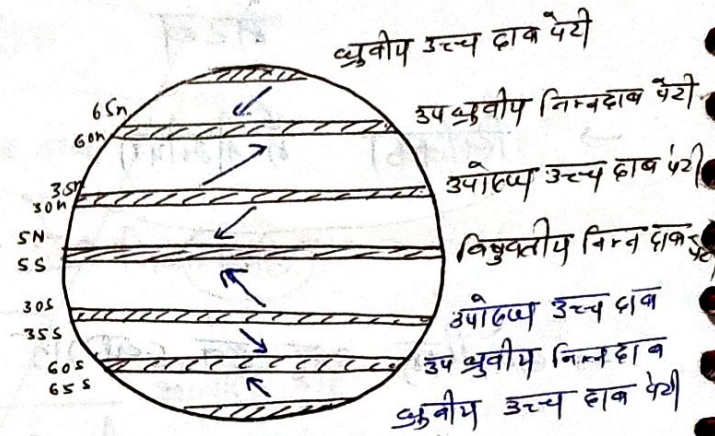 ध्रुवीय उच्च दाब पेटी
65n
60n
उप ध्रुवीय निम्नदाब पेटी
35n
30n
उपोष्ण उच्च दाब पेटी
5N
5S
विषुवतीय निम्न दाब पेटी
30S
35S
उपोष्ण उच्च दाब
60S
65S
उप ध्रुवीय निम्न दाब
ध्रुवीय उच्च दाब पेटी